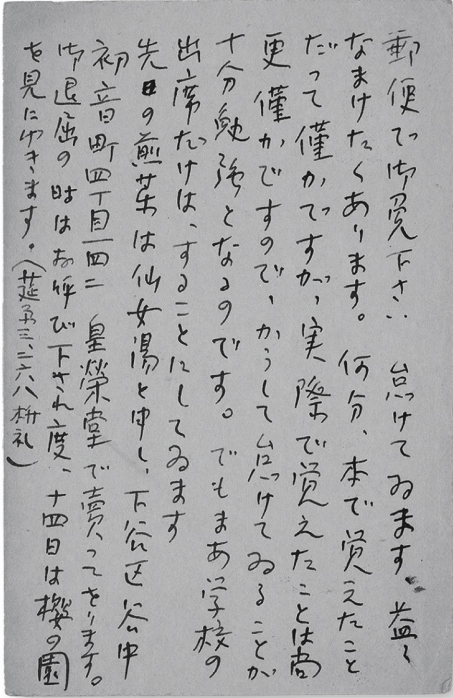 郵便で御免下さい 怠けてゐます。益々
なまけたくあります。何分、本で覚えたこと
だって僅かですが、実際で覚えたことは尚
更僅かですので、かうして怠けてゐることが
十分勉強となるのです。でもまあ学校の
出席だけは、することにしてゐます
先日の煎薬は仙女湯と申し、下谷区谷中
初音町四丁目一四二 皇榮堂で賣ってをります。
御退屈の時はお呼び下され度、十四日は櫻の園
を見にゆきます。